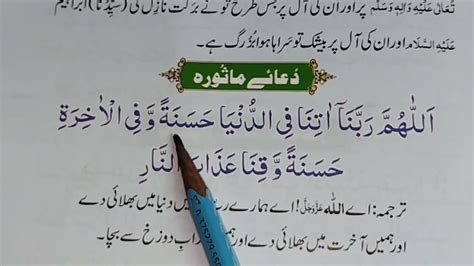 تَعَالٰی عَلَیْہِ وَاٰلِہٖ وَسَلَّم پر اور ان کی آل پر جس طرح تو نے برکت نازل کی (سَیِّدُنا) ابراہیم
عَلَیْہِ السَّلَام اور ان کی آل پر بیشک تو سراہا ہوا بزرگ ہے۔
دُعائے ماثورہ
اَللّٰهُمَّ رَبَّنَآ اٰتِنَا فِی الدُّنْیَا حَسَنَةً وَّ فِی الْاٰخِرَةِ
حَسَنَةً وَّقِنَا عَذَابَ النَّارِ
ترجمہ: اے اللہ عَزَّوَجَلَّ! اے ہمارے رب میں دنیا میں بھلائی دے
اور ہمیں آخرت میں بھلائی دے اور ہمیں دوزخ سے بچا۔